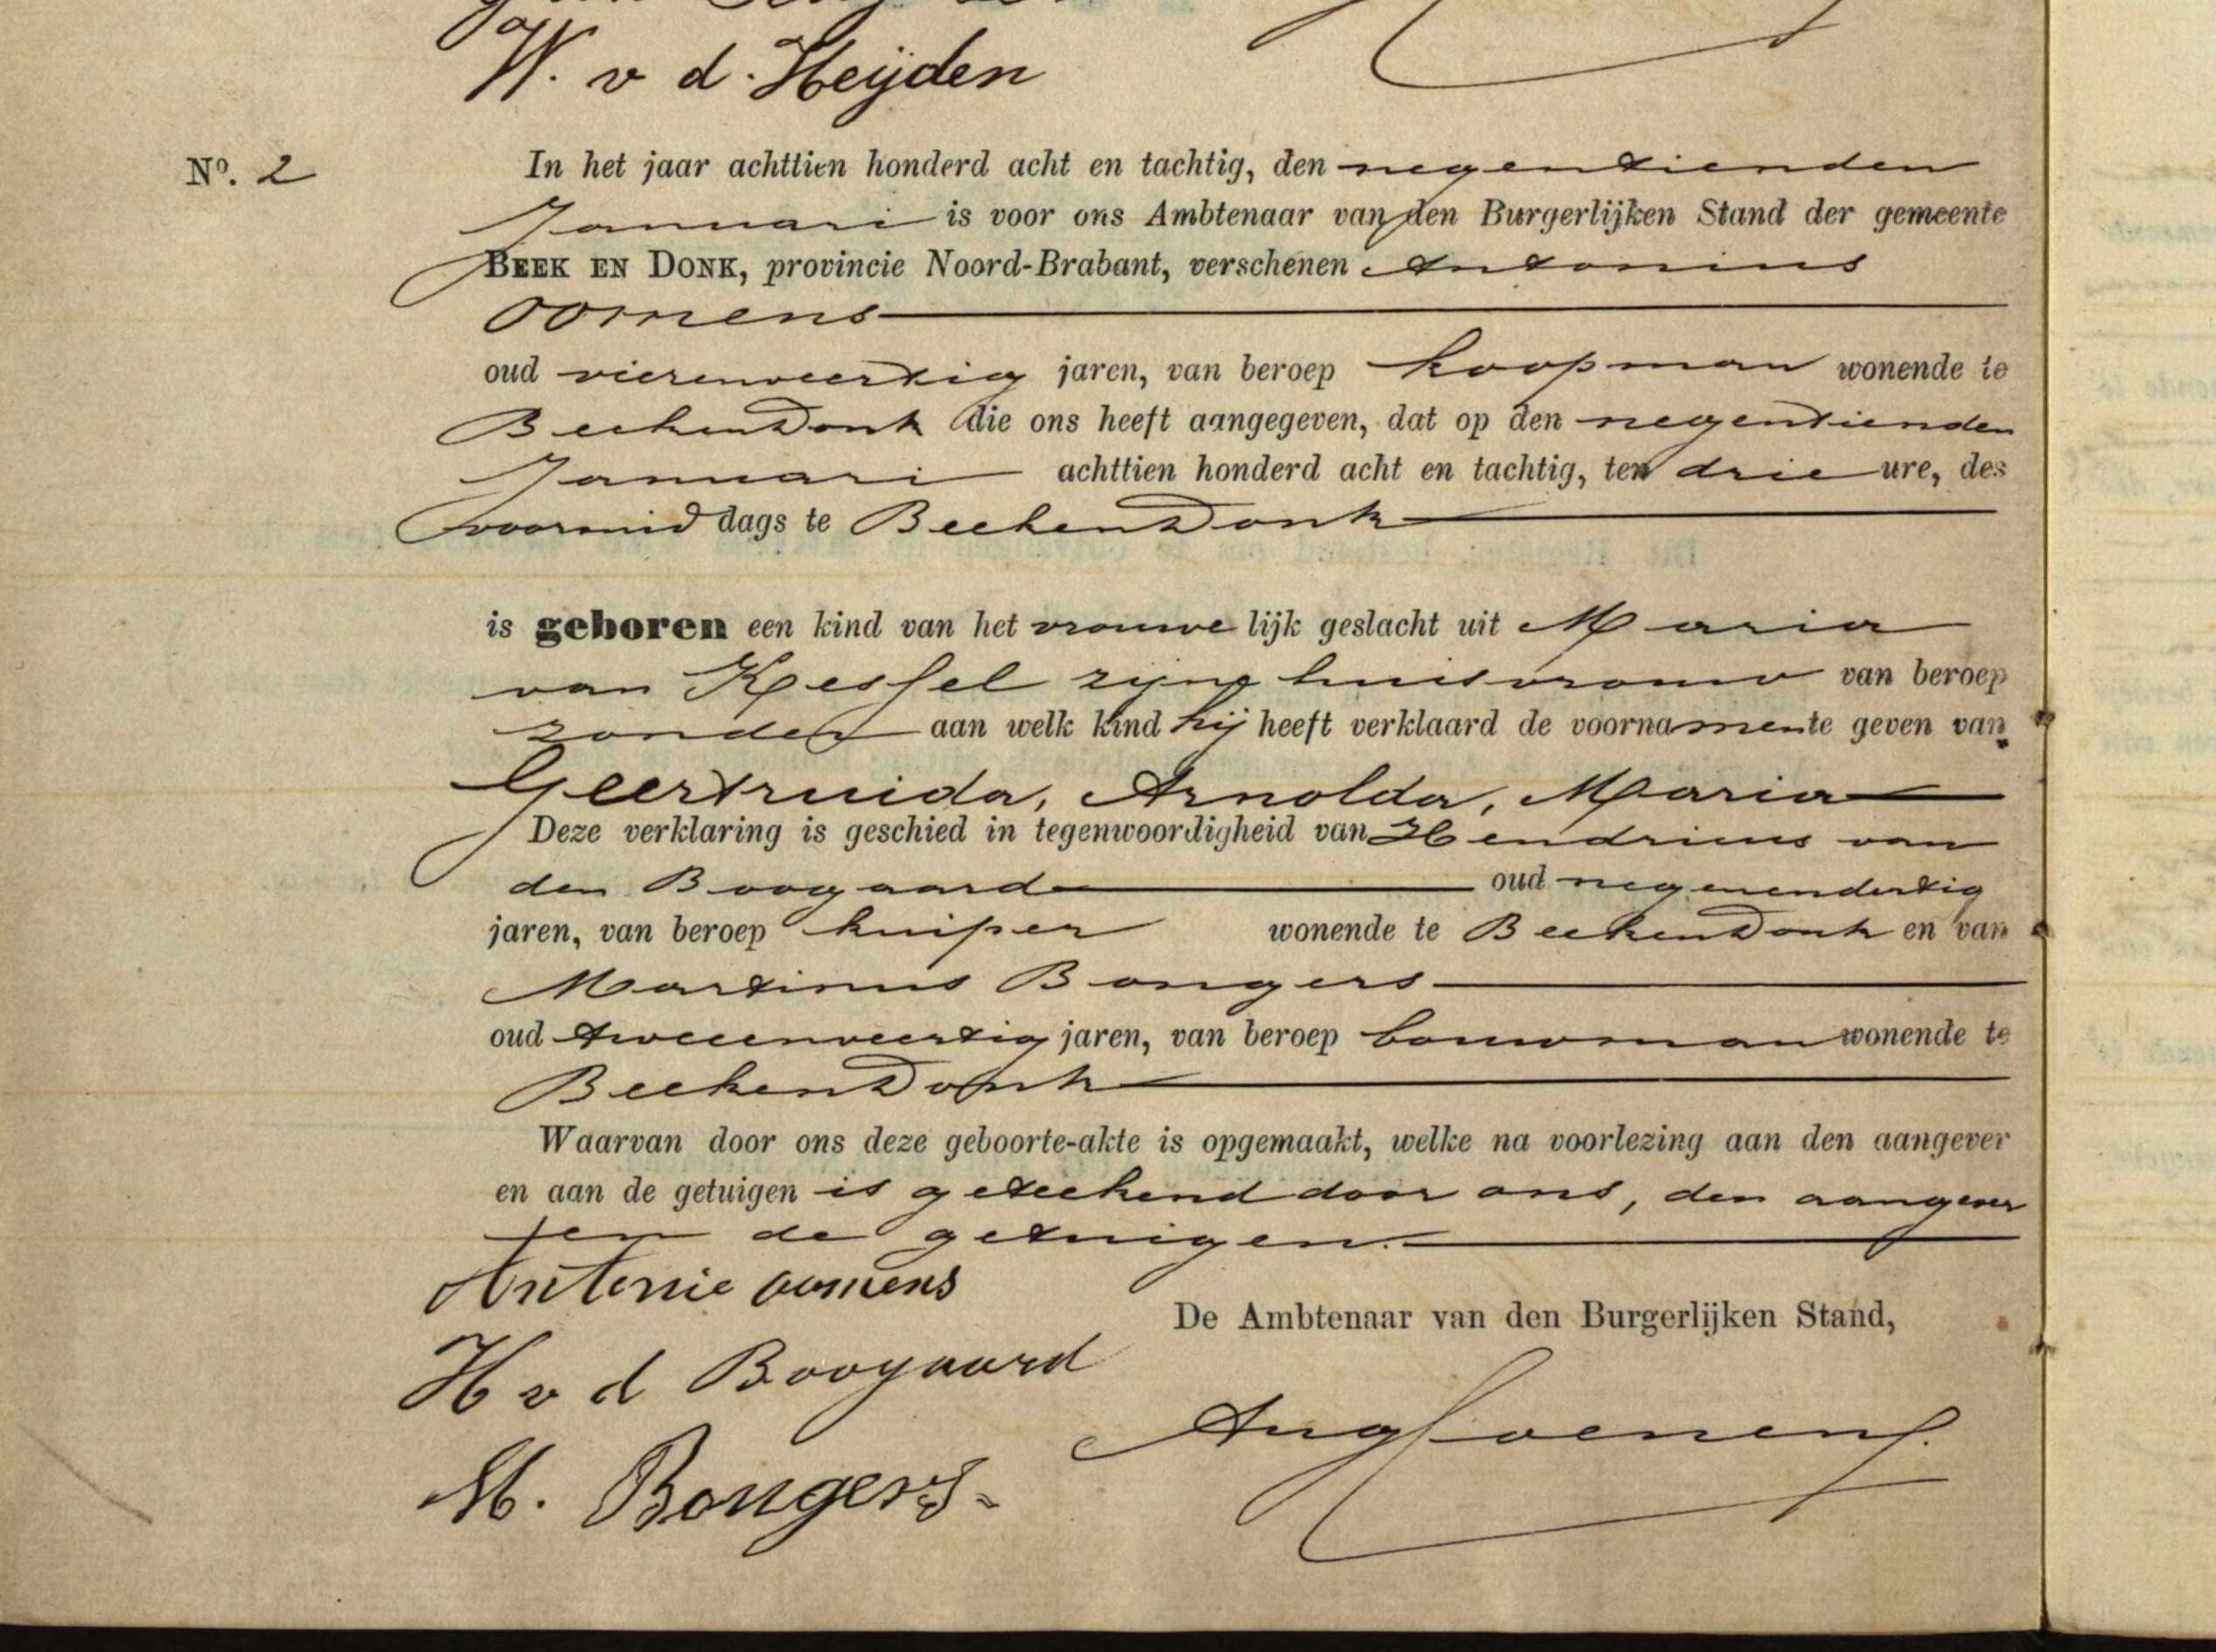 W. v d. Heijden
No. 2
In het jaar achttien honderd acht en tachtig, den negentienden
Januari is voor ons Ambtenaar van den Burgerlijken Stand der gemeente
BEEK EN DONK, provincie Noord-Brabant, verschenen Antonius
Oomens
oud vierenveertig jaren, van beroep koopman wonende te
Beekendonk die ons heeft aangegeven, dat op den negentienden
Januari achttien honderd acht en tachtig, ten drie ure, des
voormiddags te Beekendonk
is geboren een kind van het vrouwelijk geslacht uit Maria
van Kessel zijne huisvrouw van beroep
zonder aan welk kind hij heeft verklaard de voornamen te geven van
Geertruida, Arnolda, Maria
Deze verklaring is geschied in tegenwoordigheid van Hendricus van
den Boogaard oud negenendertig
jaren, van beroep kuiper wonende te Beekendonk en van
Martinus Bongers
oud tweeenveertig jaren, van beroep bouwman wonende te
Beekendonk
Waarvan door ons deze geboorte-akte is opgemaakt, welke na voorlezing aan den aangever
en aan de getuigen is geteekend door ons, den aangever
en de getuigen.
Antonie oomens
De Ambtenaar van den Burgerlijken Stand,
H v d Boogaard
M. Bongers